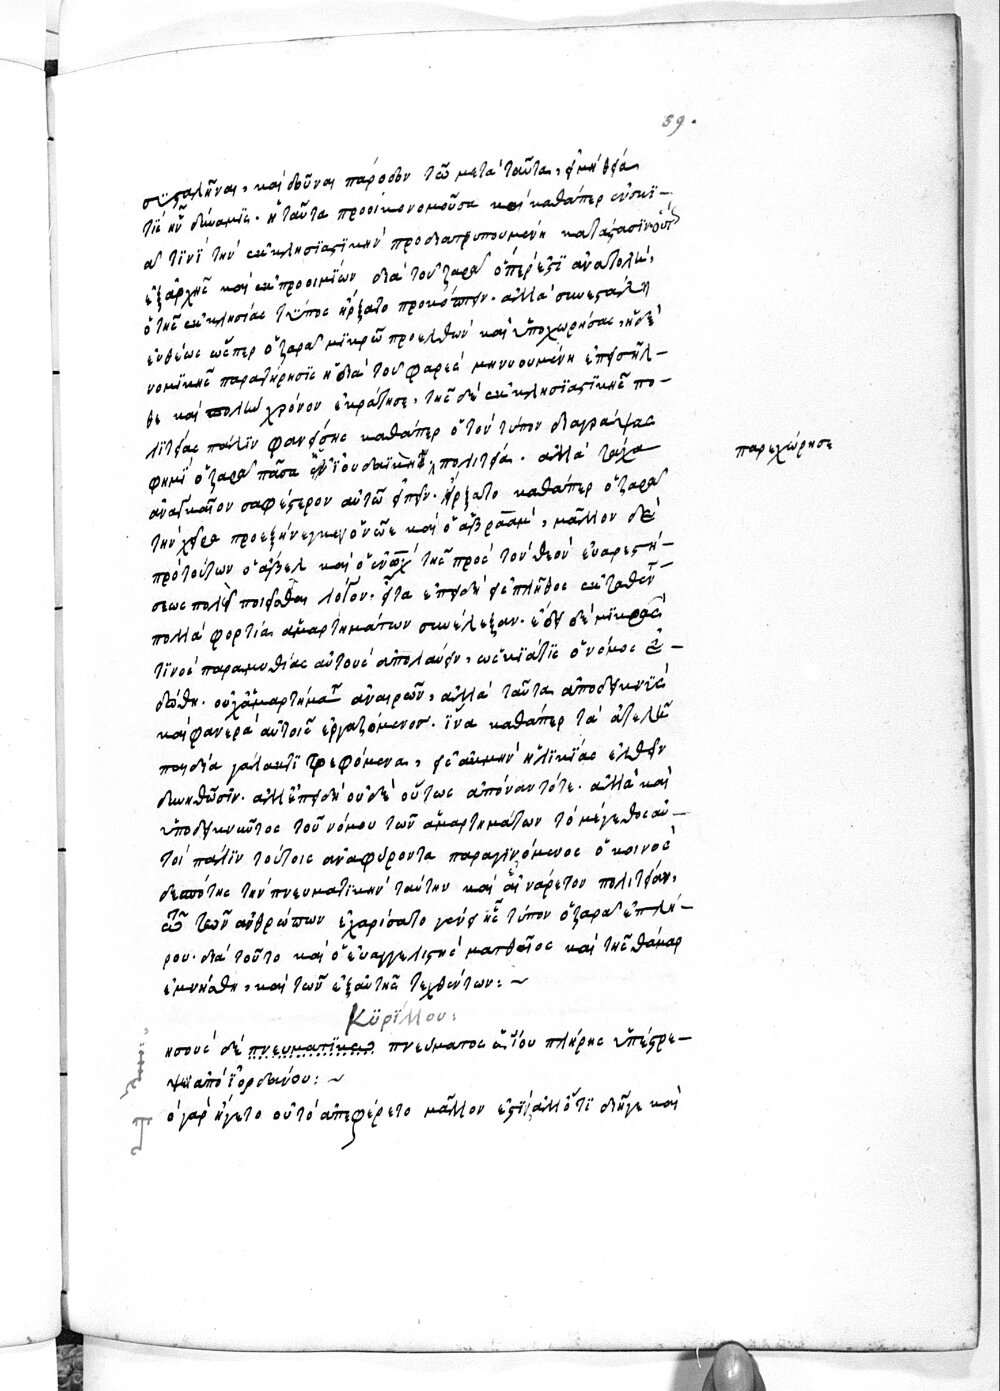 59.
συσταλῆναι, καὶ δοῦναι πάροδον τῶ μετὰ ταῦτα, ἐμηθεία
τίς ἦν δύναμις. ἡ ταῦτα προοικονομοῦσα καὶ καθάπερ ἐν σκϊ-
ᾶ τινὶ τὴν ἐκκλησϊαστϊκὴν προδιατυπουμένη κατάστασιν
ἐξἀρχῆς καὶ ἐκ προοιμίων διὰ τοῦ ζαρὰ ὅπέρ ἐστϊ ἀνατολὴ,
ὁ τῆς ἐκκλησίας τύπος ἤρξατο προκόπτειν. ἀλλὰ συνεστάλη
εὐθέως ὥσπερ ὁ ζαρὰ μϊκρῶ προελθὼν καὶ ὑποχωρήσας, ἡ δὲ
νομϊκῆς παρατήρησϊς ἡ διὰ τοῦ φαρὲς μηνυομένη ἐπεισῆλ-
θε καὶ πολὺν χρόνον ἐκράτησε, τῆς δὲ ἐκκλησϊαστϊκῆς πο-
λϊτείας πάλϊν φανείσης καθάπερ ὁ τὸν τύπον διαγράψας
φημὶ ὁ ζαρὰ πᾶσα ἡ ϊουδαϊκὴ πολιτεία. ἀλλὰ τάχα
παρεχώρησε
ἀναγκαῖον σαφέστερον αὐτῶ εἰπεῖν. ἤρξατο καθάπερ ὁ ζαρὰ
τὴν χεῖρα προεξήνεγκεν ὁ νῶε καὶ ὁ ἀβραὰμ, μᾶλλον δὲ
πρὸ τούτων ὁ ἄβελ καὶ ὁ ἐνὼχ τῆς πρὸς τὸν θεὸν εὐαρεστή-
σεως πολὺν ποιεῖσθαι λόγον. εἶτα ἐπειδὴ εἰς πλῆθος ἐκταθὲν
πολλὰ φορτία ἁμαρτημάτων συνέλεξαν. ἔδει δὲ μϊκρᾶς
τϊνὸς παραμυθίας αὐτοὺς ἀπολαύειν, ὡς σκϊά τϊς ὁ νόμος ἐ-
δόθη. οὐχ ἁμαρτήματα ἀναιρῶν, ἀλλὰ ταῦτα ἀποδεικνῢς
καὶ φανερὰ αὐτοῖς ἐργαζόμενος. ἵνα καθάπερ τὰ ἀτελῆ
παιδία γάλακτϊ τρεφόμενα, εἰς ἀκμὴν ἡλϊκίας ἐλθεῖν
δυνηθῶσϊν. ἀλλ ἐπειδὴ οὐδὲ οὕτως ἀπόναντό τε. ἀλλὰ καὶ
ὑποδεικνῦντος τοῦ νόμου τῶν ἁμαρτημάτων τὸ μέγεθος αὐ-
τοὶ πάλϊν τούτοις ἀναφύροντα παραγϊνόμενος ὁ κοινὸς
δεσπότης τὴν πνευματϊκὴν ταύτην καὶ ἐνάρετον πολιτείαν,
τῶν ἀνθρώπων ἐχαρίσατο γένει ἧς τύπον ὁ ζαρὰ ἐπλή-
ρου. διὰ τοῦτο καὶ ὁ εὐαγγελιστὴς ματθαῖος καὶ τῆς θάμαρ
ἐμνήσθη, καὶ τῶν ἐξ αὐτῆς τεχθέντων: ~
Κϋρΐλλου:
ιησοὺς δὲ πνευματϊκὸς πνεύματος ἁγίου πλήρης ὑπέστρε-
ψεν ἀπὸ ϊορδάνου: ~
ὁ γὰρ ἤγετο οὐ τὸ ἀπεφέρετο μᾶλλον ἐστϊ, ἀλλ ὅτϊ διῆγε καὶ